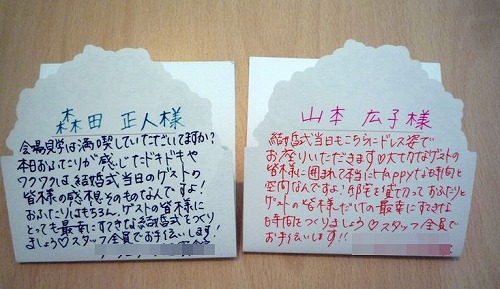 森田 正人様
会場見学は満喫していただいてますか?
本日おふたりが感じたドキドキや
ワクワクは、結婚式当日のゲストの
皆様の感想そのものなんですよ!
おふたりはもちろん、ゲストの皆様に
とっても最幸にすてきな結婚式をつくり
ましょう♡スタッフ全員でお手伝いします!
山本 広子様
結婚式当日もこちらにドレス姿で
お座りいただきます。大すきなゲストの
皆様に囲まれて本当にHappyな時間と
空間なんですよ!邸宅を貸切っておふたりと
ゲストの皆様だけの最幸にすてきな
時間をつくりましょう♡スタッフ全員で
お手伝いします!!